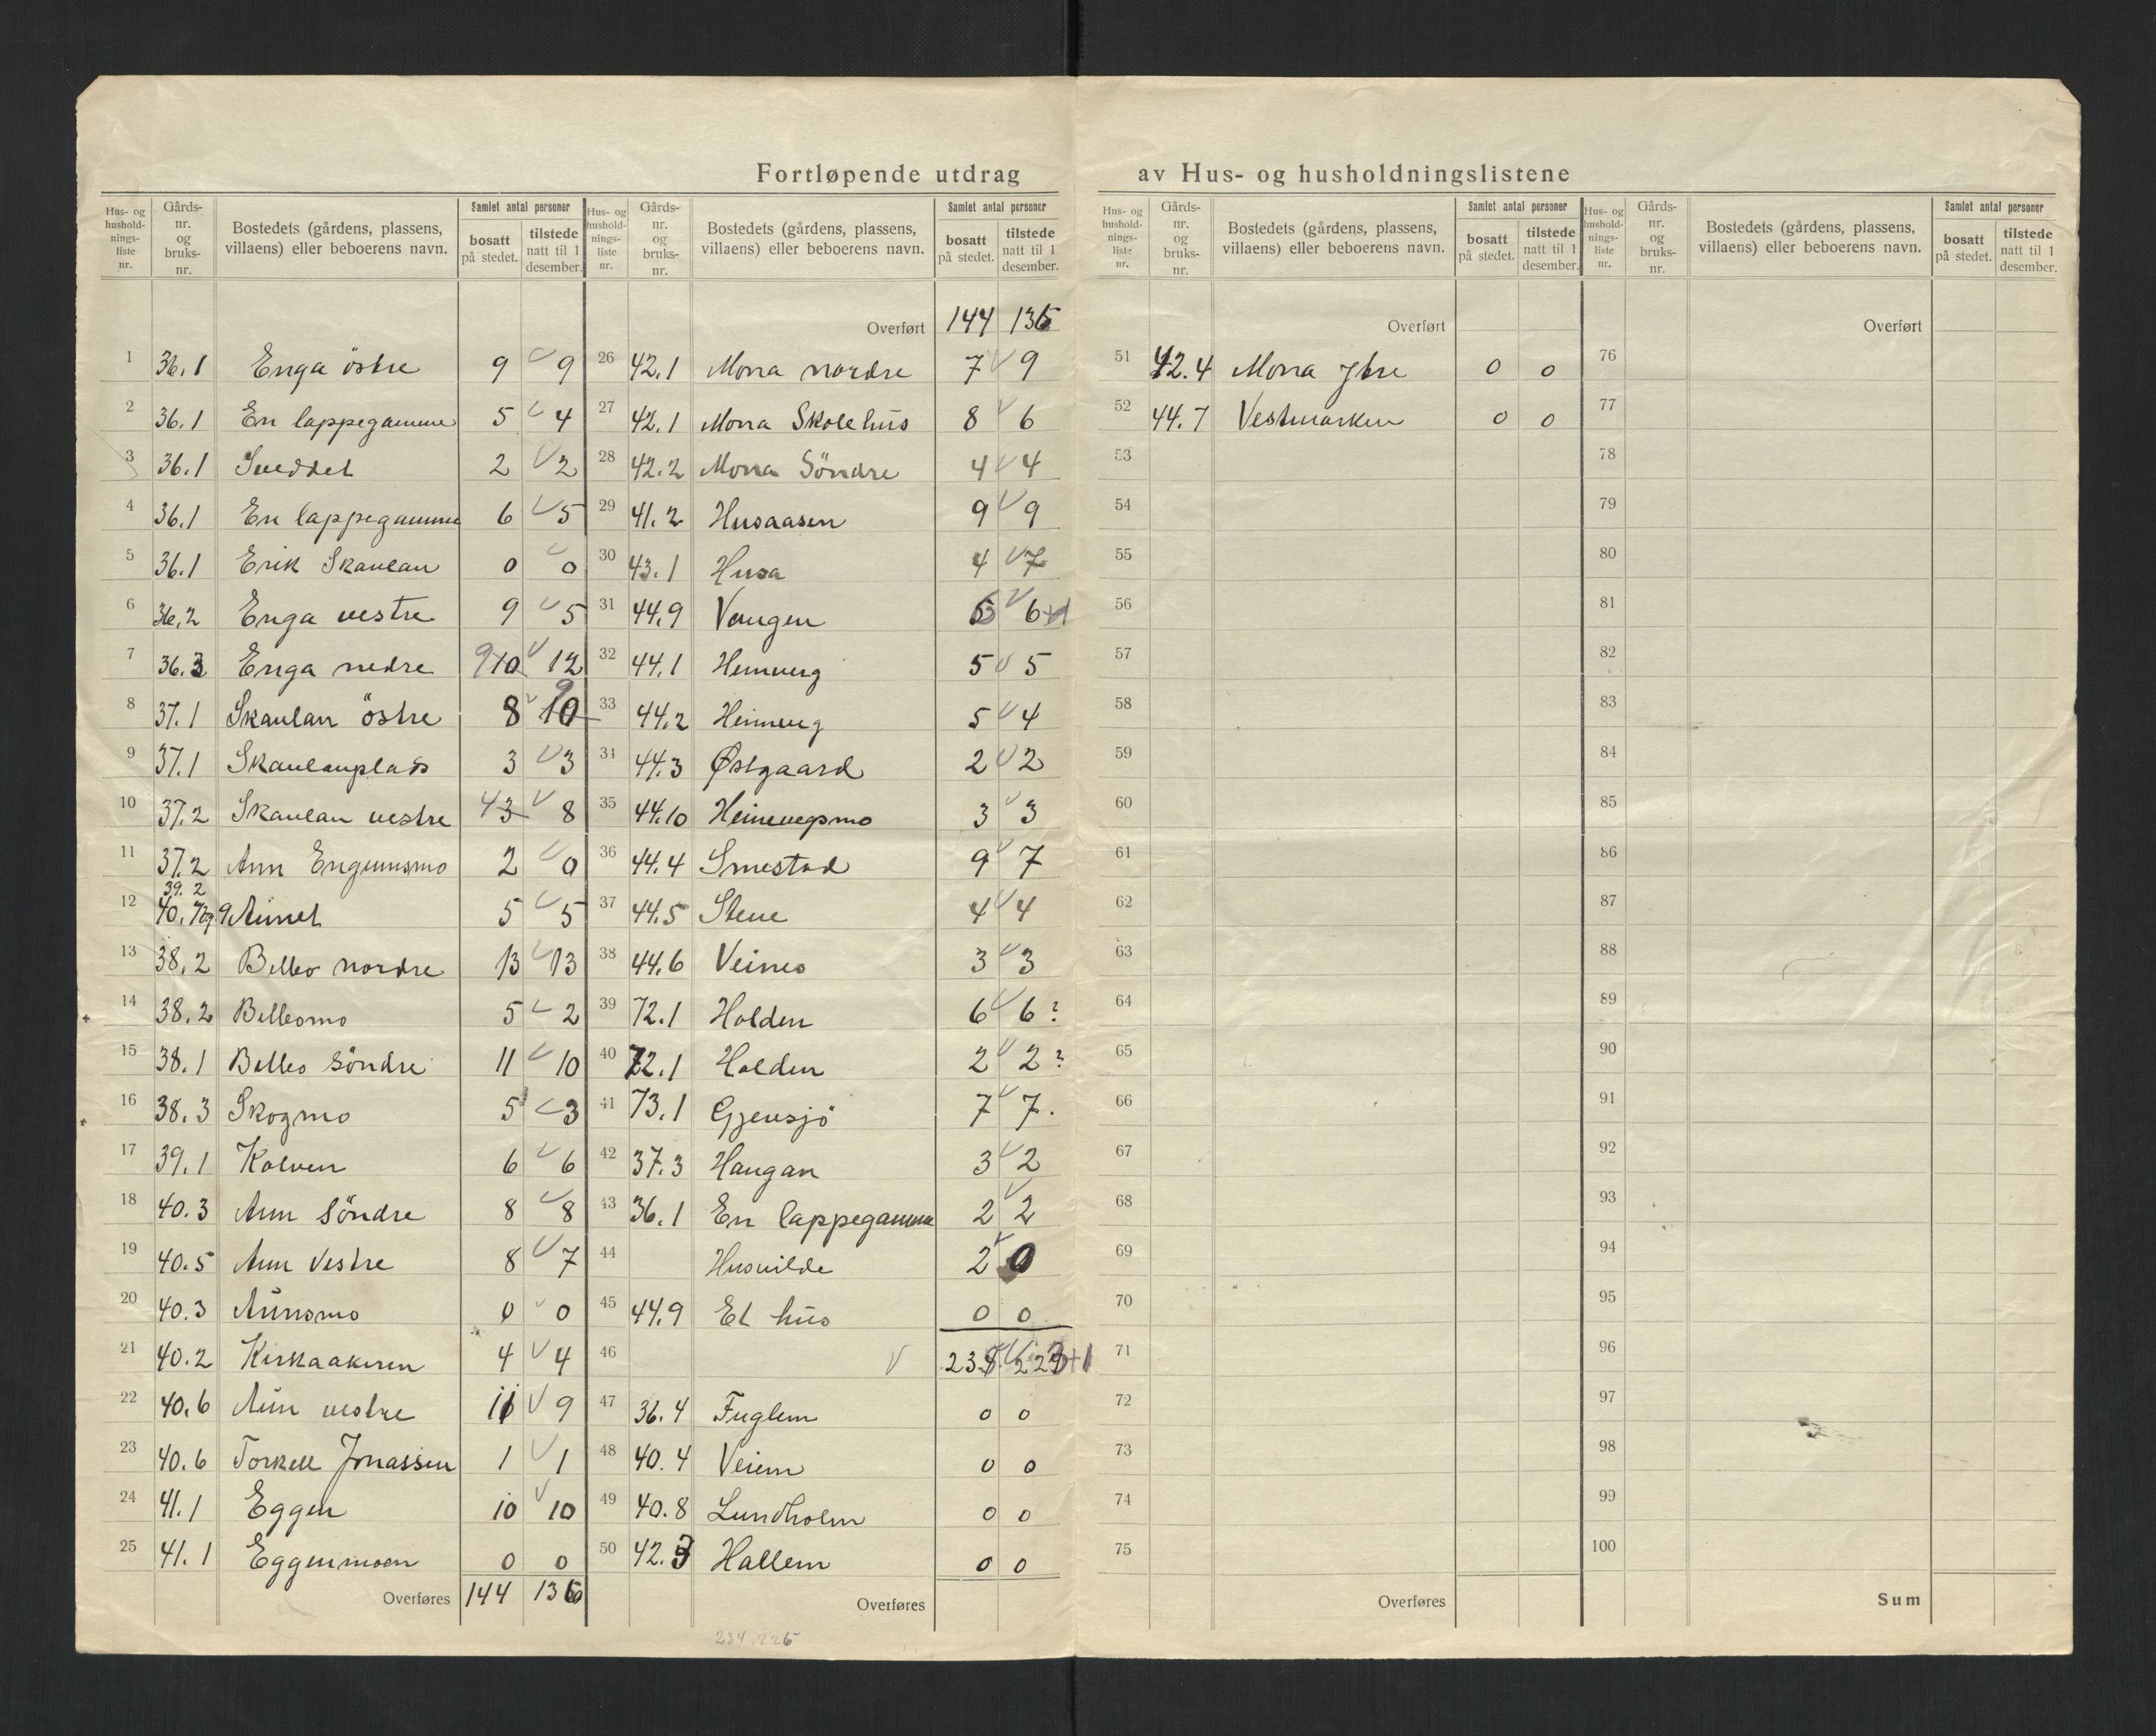 Fortløpende utdrag av Hus- og husholdningslistene
Hus- og husholdnings-liste nr. Gårds-nr. og bruks-nr. Bostedets (gårdens, plassens, villaens) eller beboerens navn. Samlet antal personer bosatt på stedet. tilstede natt til 1 desember.
1 36.1 Enga östre 9 9
2 36.1 En lappegamme 5 4
3 36.1 2 2
4 36.1 En lappegamme 6 5
5 36.1 Erik Skaulan 0 0
6 36.2 Enga vestre 9 5
7 36.3 Enga nedre 9 10 12
8 37.1 Skaulan östre 8 10 9
9 37.1 Skaulanplads 3 3
10 37.2 Skaulan vestre 4 3 8
11 37.2 Aun 2 0
12 39.2 40. 9 Aunet 5 5
13 38.2 Belbo nordre 13 13
14 38.2 Belbomo 5 2
15 38.1 Belbo Söndre 11 10
16 38.3 Skogmo 5 3
17 39.1 Kolven 6 6
18 40.3 Aun Söndre 8 8
19 40.5 Aun Vestre 8 7
20 40.3 Aunsmo 0 0
21 40.2 Kirkaakeren 4 4
22 40.6 Aun vestre 11 9
23 40.6 Torkell Jonassen 1 1
24 41.1 Eggen 10 10
25 41.1 Eggenmoen 0 0
Overføres 144 136
Hus- og husholdnings-liste nr. Gårds-nr. og bruks-nr. Bostedets (gårdens, plassens, villaens) eller beboerens navn. Samlet antal personer bosatt på stedet. tilstede natt til 1 desember.
Overført 144 136
26 42.1 Mona nordre 7 9
27 42.1 Mona Skolehus 8 6
28 42.2 Mona Söndre 4 4
29 41.2 Husaasen 9 9
30 43.1 Husa 4 7
31 44.9 Vangen 6 6+1
32 44.1 Heimveg 5 5
33 44.2 Heimveg 5 4
34 44.3 Østgaard 2 2
35 44.10 Heimvegsmo 3 3
36 44.4 Smestad 9 7
37 44.5 Stene 4 4
38 44.6 Veimo 3 3
39 72.1 Holden 6 6 ?
40 72.1 Holden 2 2 ?
41 73.1 Gjensjö 7 7.
42 37.3 Haugan 3 2
43 36.1 En lappegamme 2 2
44 Husvilde 2 0
45 44.9 Et hus 0 0
46
47 36.4 Fuglem 0 0
48 40.4 Veiem 0 0
49 40.8 Lundholm 0 0
50 42.3 Hallem 0 0
Overføres
234 226
Hus- og husholdnings-liste nr. Gårds-nr. og bruks-nr. Bostedets (gårdens, plassens, villaens) eller beboerens navn. Samlet antal personer bosatt på stedet. tilstede natt til 1 desember.
Overført
51 42.4 Mona Ytre 0 0
52 44.7 Vestmarken 0 0
53
54
55
56
57
58
59
60
61
62
63
64
65
66
67
68
69
70
71
72
73
74
75
Overføres
Hus- og husholdnings-liste nr. Gårds-nr. og bruks-nr. Bostedets (gårdens, plassens, villaens) eller beboerens navn. Samlet antal personer bosatt på stedet. tilstede natt til 1 desember.
Overført
76
77
78
79
80
81
82
83
84
85
86
87
88
89
90
91
92
93
94
95
96
97
98
99
100
Sum